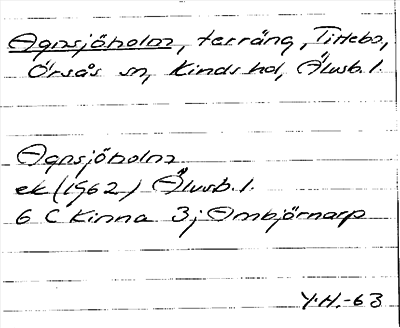 Agnsjöholm, terräng, Tittebo,
Örsås sn, Kinds hd, Älvsb. l.
Agnsjöholm
ek (1962) Älvsb. l.
6 C Kinna 3; Ombjörnarp
Y.H.-63